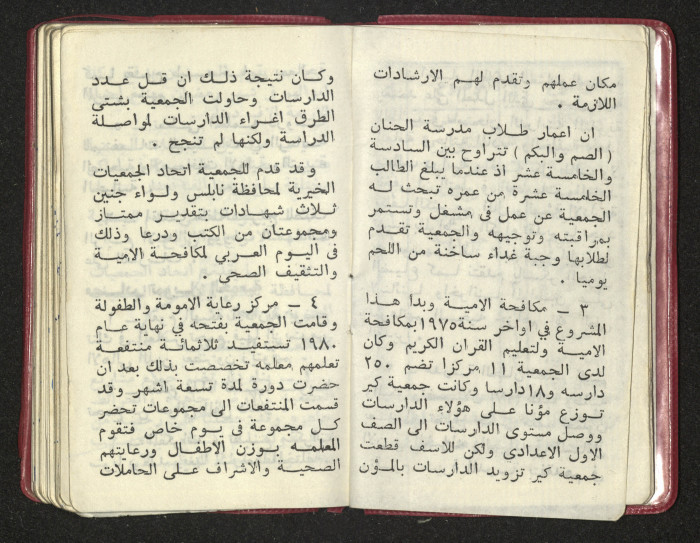 مكان عملهم وتقدم لهم الارشادات
اللازمة .
ان اعمار طلاب مدرسة الحنان
( الصم والبكم ) تتراوح بين السادسة
والخامسة عشر اذ عندما يبلغ الطالب
الخامسة عشرة من عمره تبحث له
الجمعية عن عمل في مشغل وتستمر
بمراقبته وتوجيهه والجمعية تقدم
لطلابها وجبة غداء ساخنة من اللحم
يوميا .
٣ — مكافحة الامية وبدا هذا
المشروع في اواخر سنة ١٩٧٥ بمكافحة
الامية ولتعليم القران الكريم وكان
لدى الجمعية ١١ مركزا تضم ٢٥٠
دارسه و١٨دارسا وكانت جمعية كير
توزع مؤنا على هؤلاء الدارسات
ووصل مستوى الدارسات الى الصف
الاول الاعدادى ولكن للاسف قطعت
جمعية كير تزويد الدارسات بالمؤن
وكان نتيجة ذلك ان قل عدد
الدارسات وحاولت الجمعية بشتى
الطرق اغراء الدارسات لمواصلة
الدراسة ولكنها لم تنجح .
وقد قدم للجمعية اتحاد الجمعيات
الخيرية لمحافظة نابلس ولواء جنين
ثلاث شهادات بتقدير ممتاز
ومجموعتان من الكتب ودرعا وذلك
فى اليوم العربي لمكافحة الامية
والتثقيف الصحى .
٤ — مركز رعاية الامومة والطفولة
وقامت الجمعية بفتحه في نهاية عام
١٩٨٠ تستفيد ثلاثمائة منتفعة
تعلمهم معلمه تخصصت بذلك بعد ان
حضرت دورة لمدة تسعة اشهر وقد
قسمت المنتفعات الى مجموعات تحضر
كل مجموعة في يوم خاص فتقوم
المعلمه بوزن الاطفال ورعايتهم
الصحية والاشراف على الحاملات